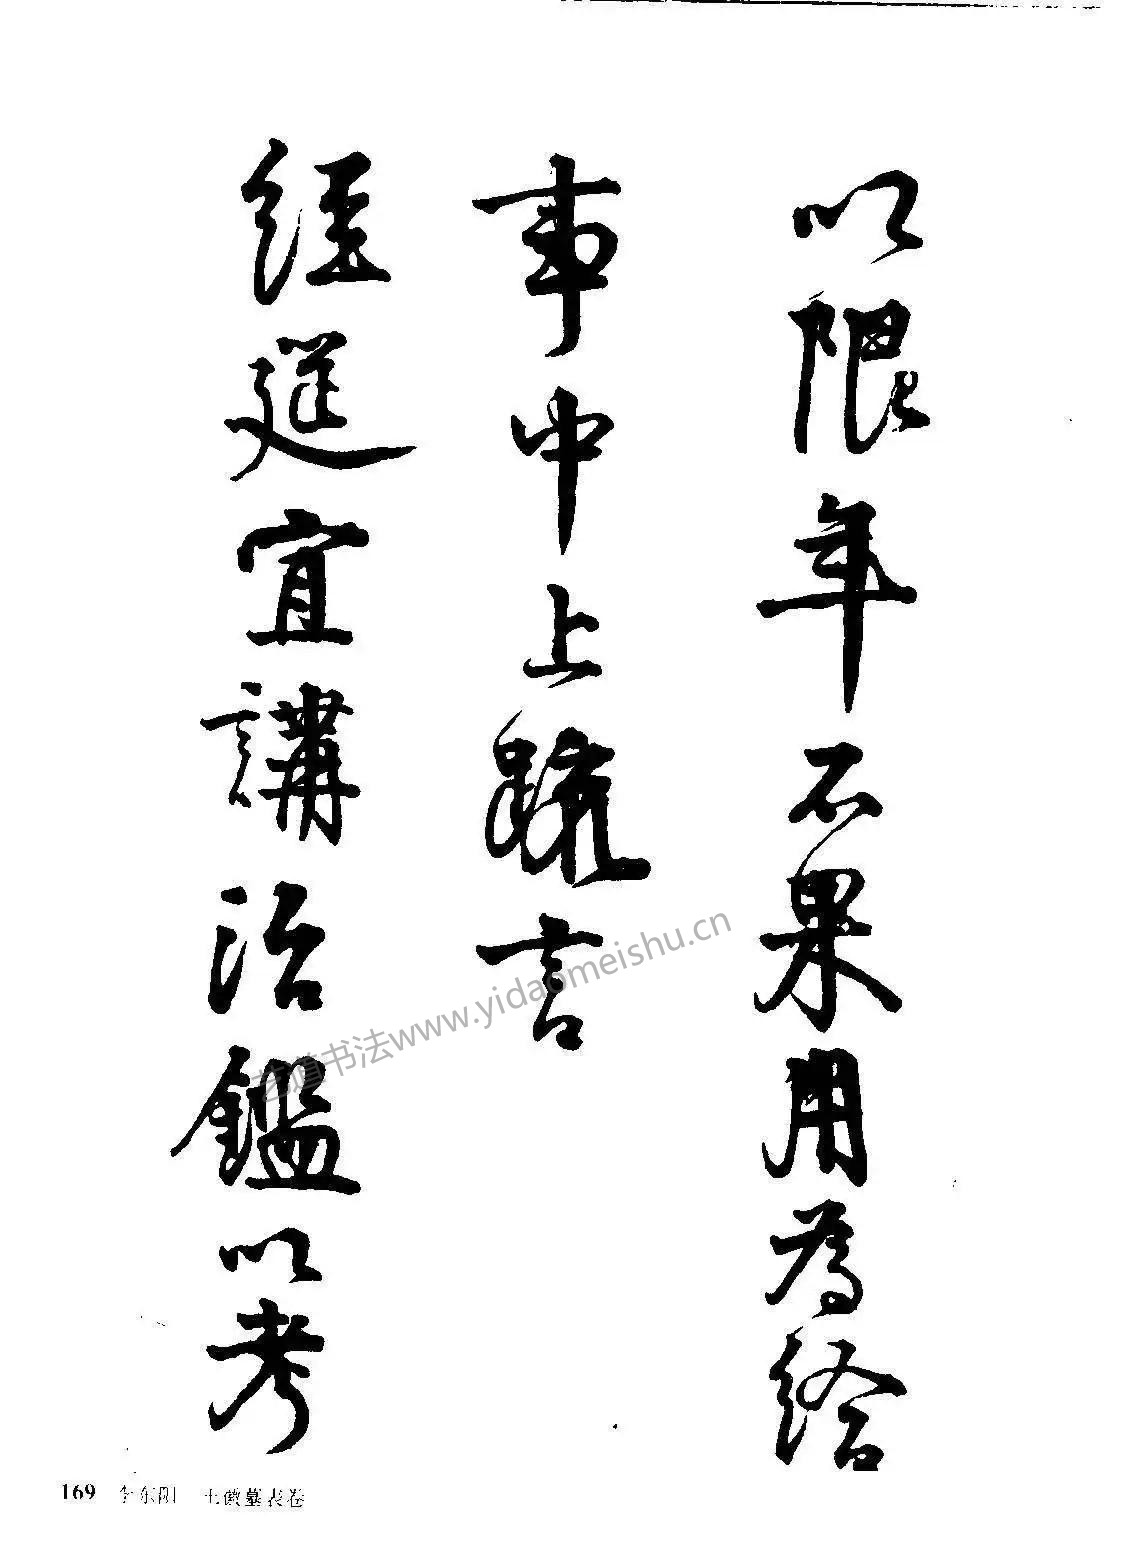 以限年不果用為給
事中上疏言
經筵宜講治鑑以考
艺道书法www.yidaomeishu.cn
169 李东阳 王徽墓表卷